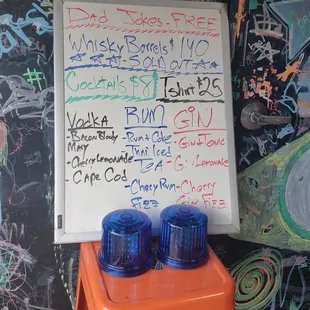 Dad Jokes - FREE
Whisky Barrels $140
SOLD OUT
Cocktails $8 Tshirt $25
Vodka
- Bacon Bloody
Mary
- Cherry Lemonade
- Cape Cod
RUM
- Rum & Coke
- Thai Iced
Tea
- Chery Rum
Fizz
GIN
- Gin & Tonic
- Gin Lemonade
- Cherry
Gin Fizz